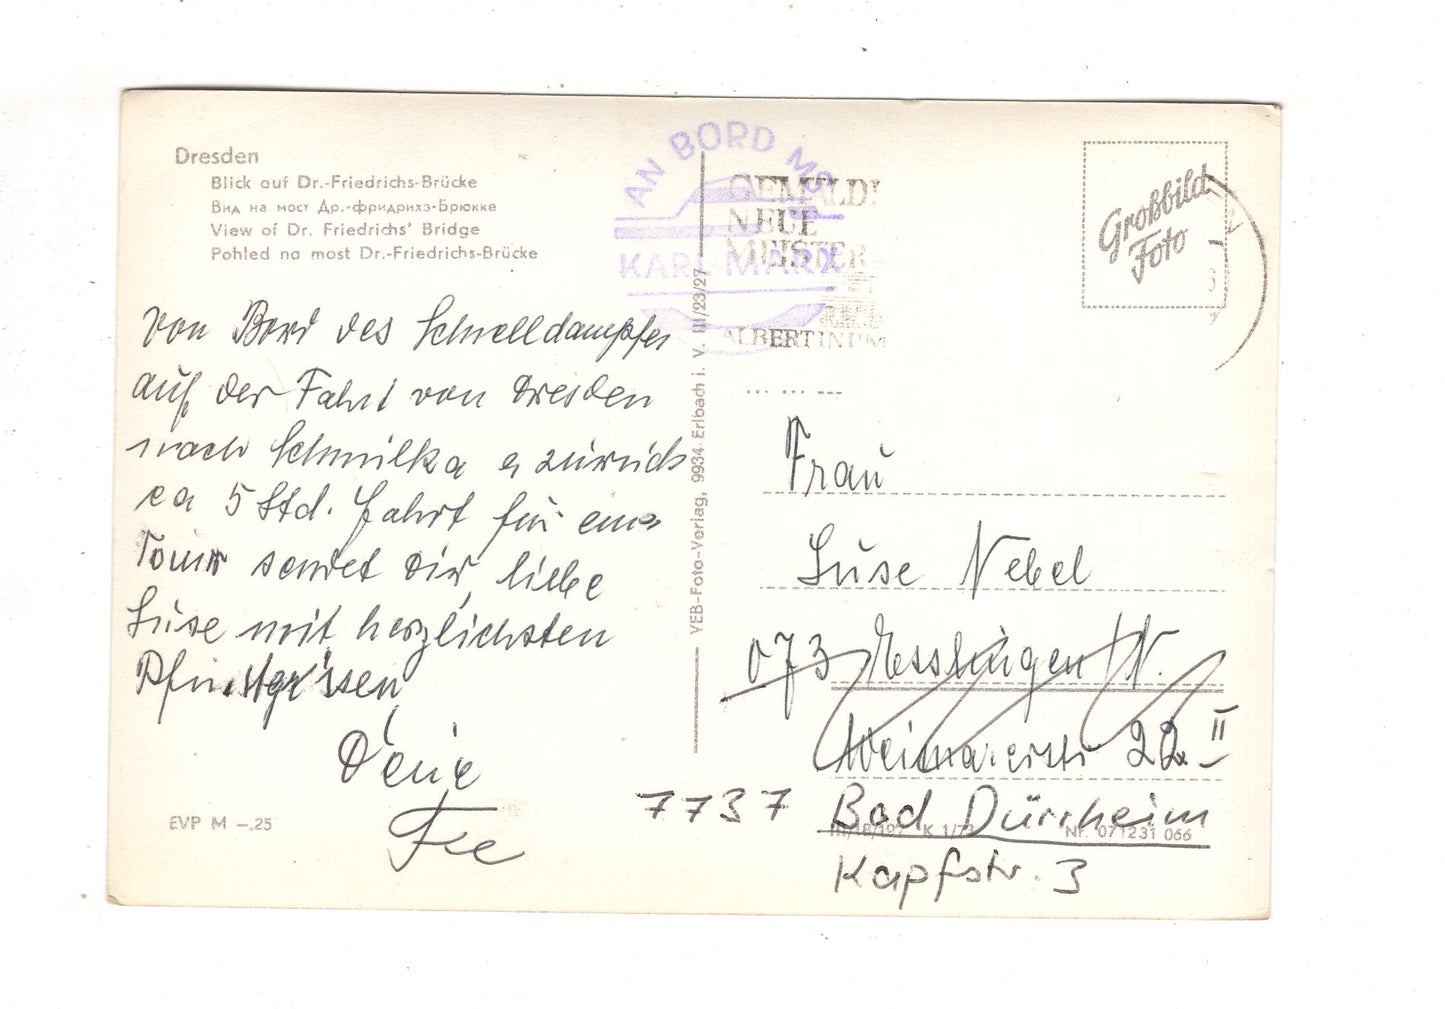 Dresden
Blick auf Dr.-Friedrichs-Brücke
Вид на мост Др.-фридрихз-Брюкке
View of Dr. Friedrichs' Bridge
Pohled na most Dr.-Friedrichs-Brücke
AN BORD MS
KARL MARX
GEMÄLD
NEUE
MEISTER
ALBERTINUM
Großbild
Foto
Von Bord des Schnelldampfer
auf der Fahrt von Dresden
nach Schmilka u zurück
ca 5 Std. Fahrt für eine
Tour sendet Dir, liebe
Suse mit herzlichsten
Pfingstgrüssen
Deine
Fee
EVP M –.25
VEB-Foto-Verlag, 9934 Erlbach i. V. III/23/27
Frau
Suse Nebel
073 Esslingen N.
Weimarerstr 22 II
7737 Bad Dürrheim
III/18/197 K 1/73 Nr. 071231 066
Kapfstr. 3